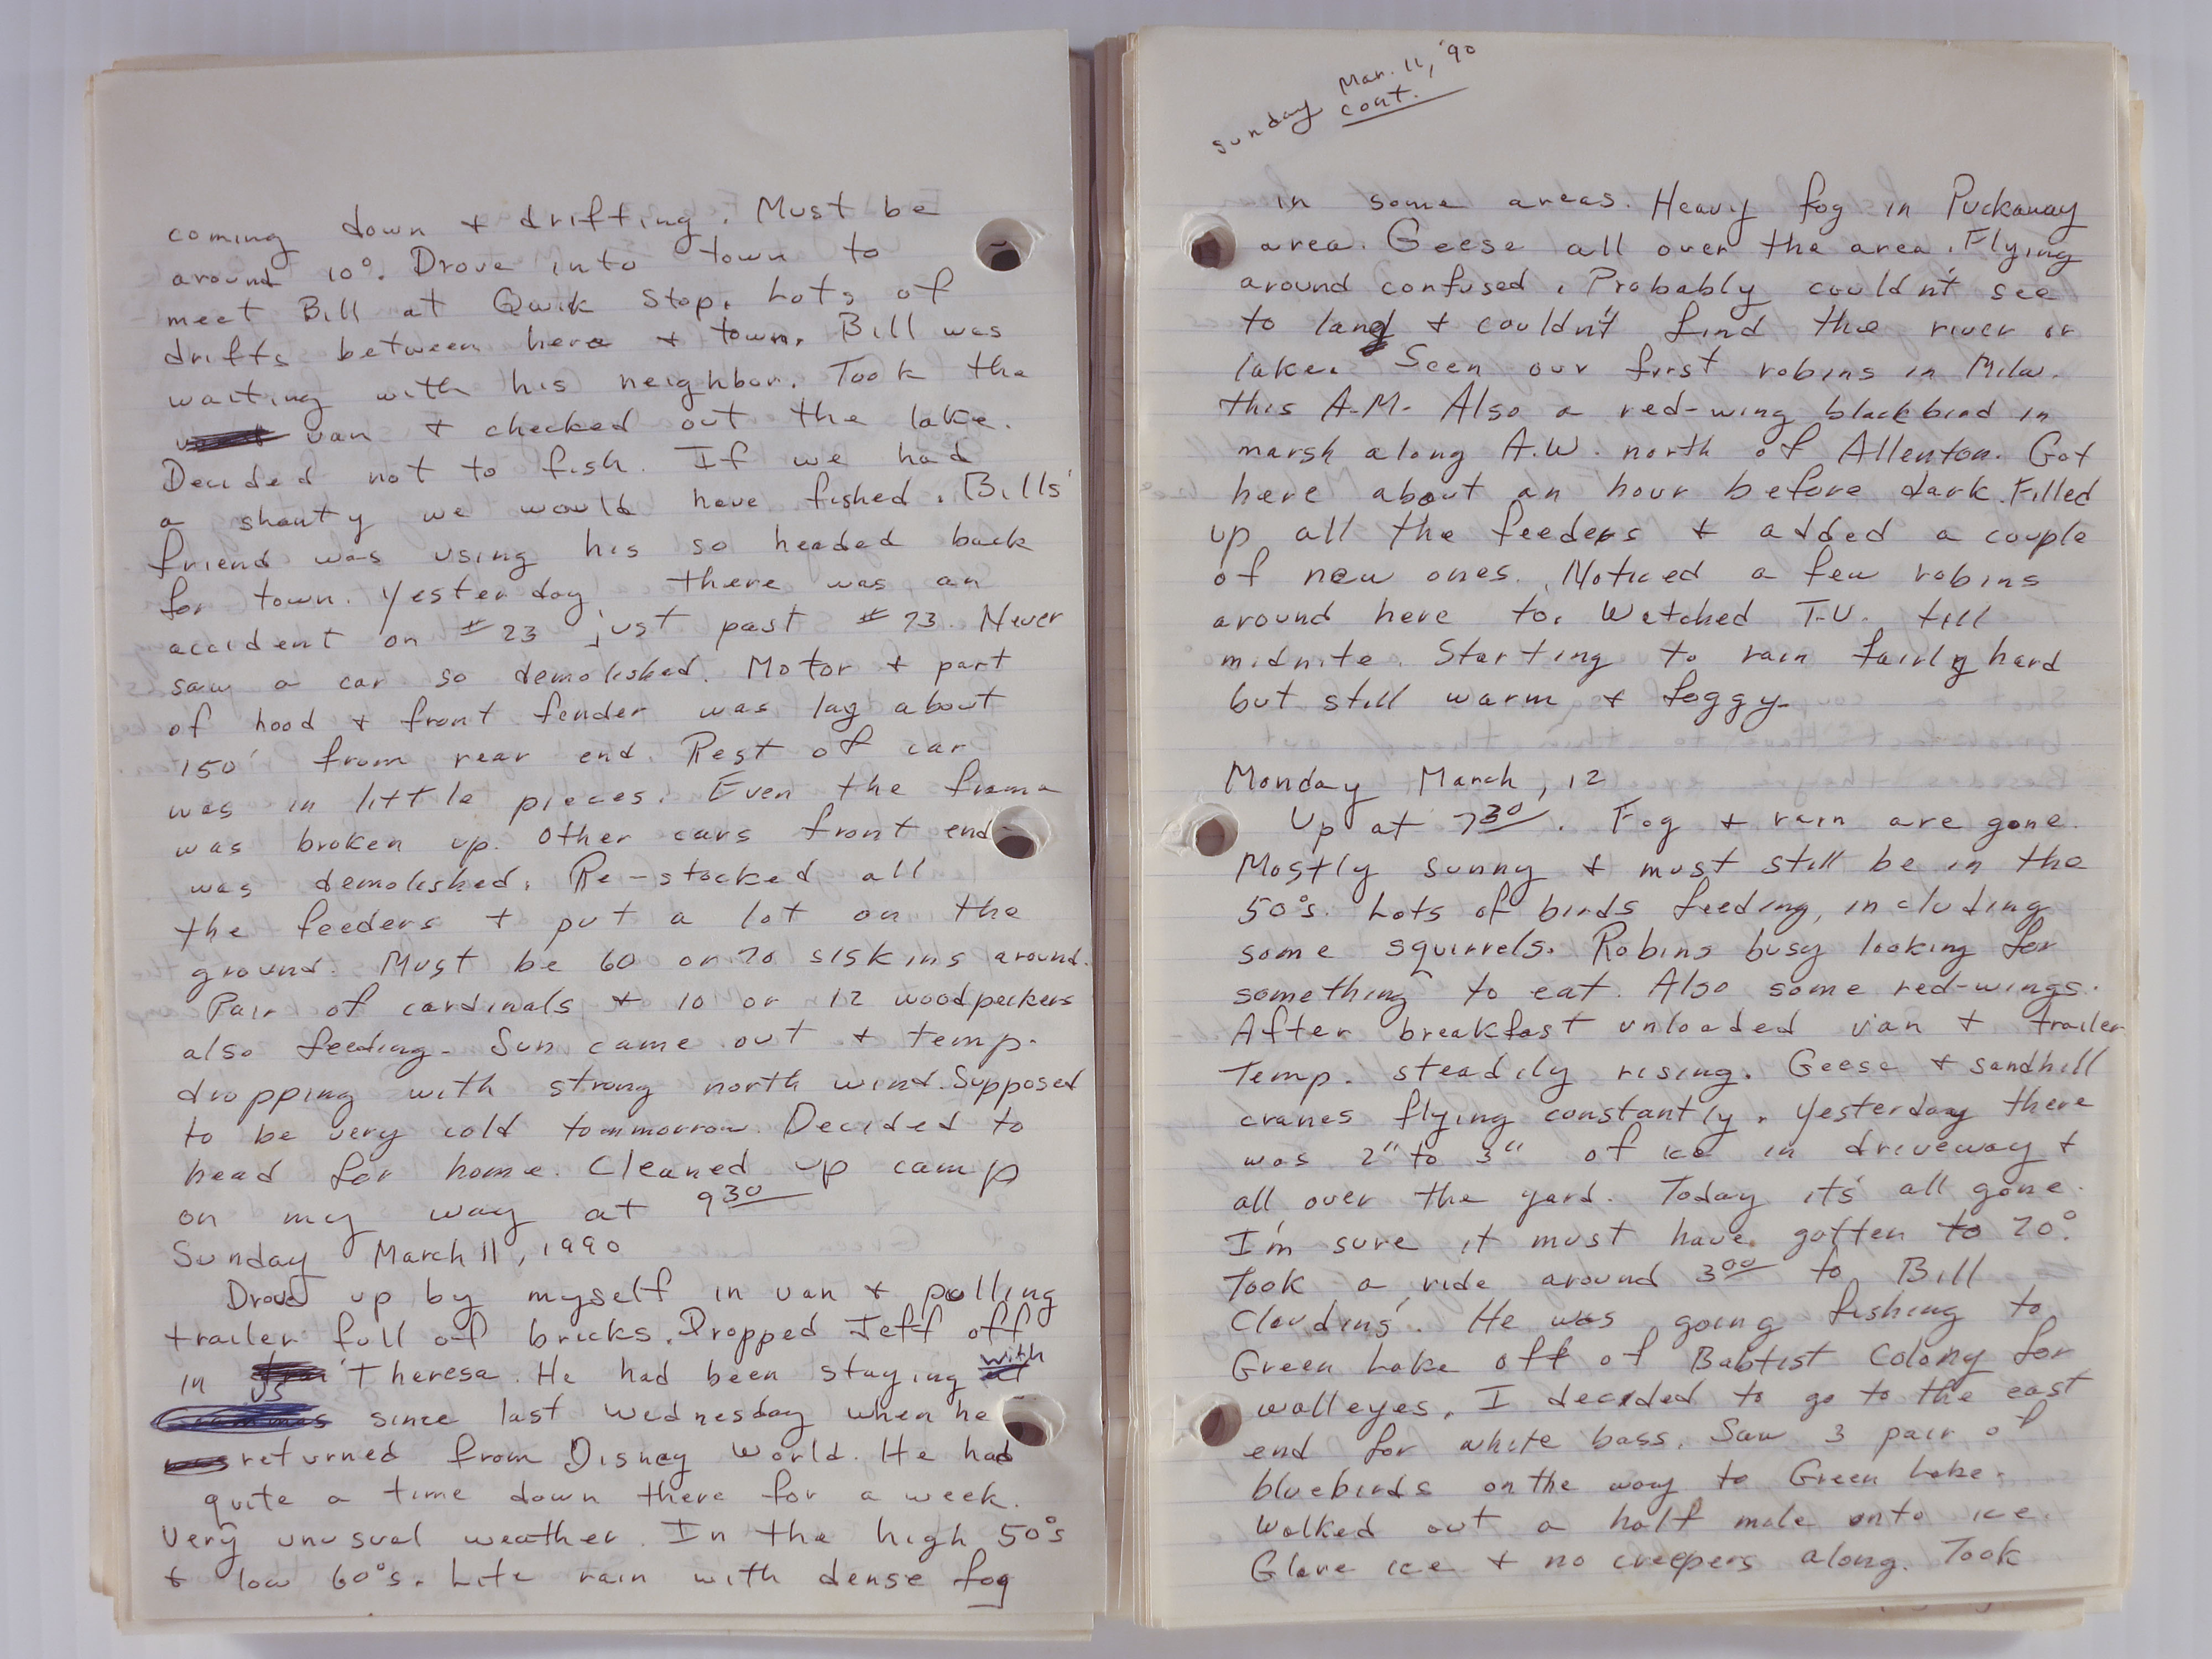 coming down & drifting. Must be
around 10°. Drove into town to
meet Bill at Qwik Stop. Lots of
drifts between here & town. Bill was
waiting with his neighbor. Took the
van & checked out the lake.
Decided not to fish. If we had
a shanty we would have fished. Bills'
friend was using his so headed back
for town. Yesterday there was an
accident on #23 just past #73. Never
saw a car so demolished. Motor & part
of hood & front fender was lag about
150' from rear end. Rest of car
was in little pieces. Even the frame
was broken up. Other cars front end
was demolished. Re-stocked all
the feeders & put a lot on the
ground. Must be 60 or 70 siskins around.
Pair of cardinals & 10 or 12 woodpeckers
also feeding. Sun came out & temp.
dropping with strong north wind. Supposed
to be very cold tommorrow. Decided to
head for home. Cleaned up camp
on my way at 9³⁰
Sunday March 11, 1990
Drove up by myself in van & pulling
trailer full of bricks. Dropped Jeff off
in Theresa. He had been staying with
us since last Wednesday when he
returned from Disney World. He had
quite a time down there for a week.
Very unusual weather. In the high 50°s
& low 60°s. Lite rain with dense fog
Sunday Mar. 11, '90
cont.
in some areas. Heavy fog in Puckaway
area. Geese all over the area. Flying
around confused. Probably couldn't see
to land & couldn't find the river or
lake. Seen our first robins in Milw.
this A.M. Also a red-wing blackbird in
marsh along A.W. north of Allenton. Got
here about an hour before dark. Filled
up all the feeders & added a couple
of new ones. Noticed a few robins
around here to. Watched T.V. till
midnite. Starting to rain fairly hard
but still warm & foggy.
Monday March, 12
Up at 7³⁰. Fog & rain are gone.
Mostly sunny & must still be in the
50°s. Lots of birds feeding, including
some squirrels. Robins busy looking for
something to eat. Also some red-wings.
After breakfast unloaded van & trailer
Temp. steadily rising. Geese & sandhill
cranes flying constantly. Yesterday there
was 2" to 3" of ice in driveway &
all over the yard. Today it's all gone.
I'm sure it must have gotten to 70°.
Took a ride around 3⁰⁰ to Bill
Claudins'. He was going fishing to
Green Lake off of Babtist Colony for
walleyes. I decided to go to the east
end for white bass. Saw 3 pair of
bluebirds on the way to Green Lake.
Walked out a half mile onto ice.
Glare ice & no creepers along. Took